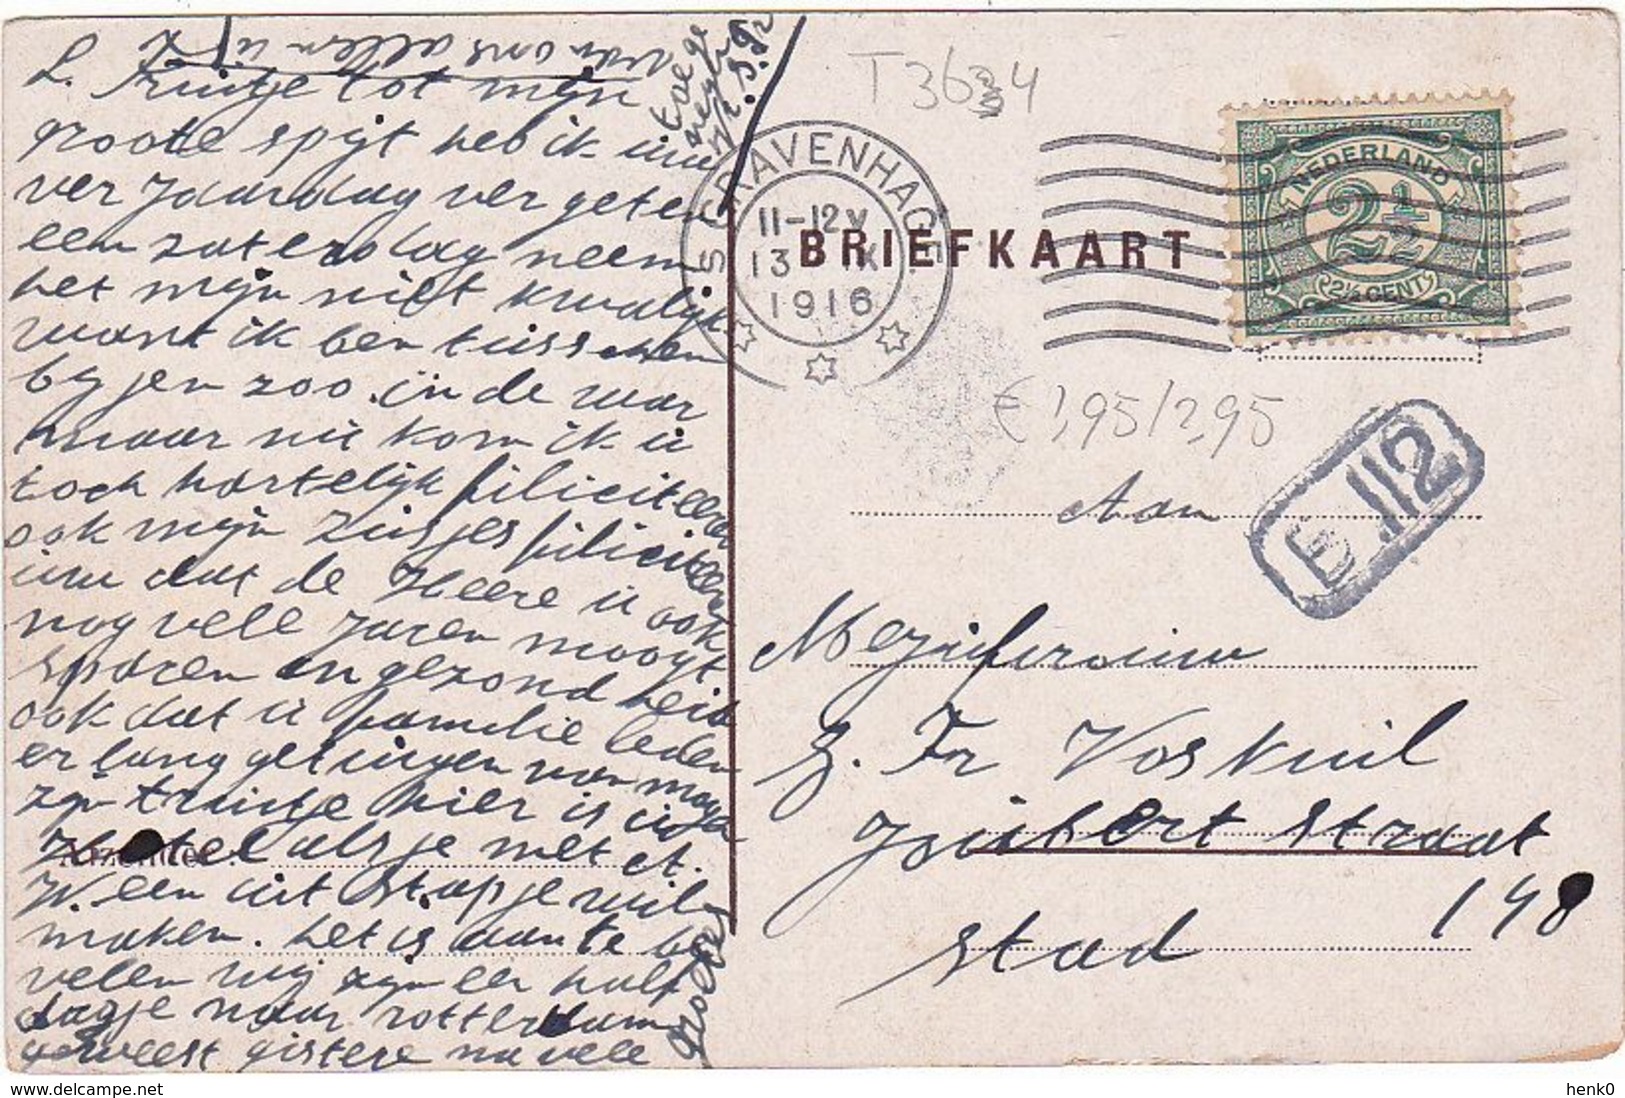 L. Truitje tot mijn
groote spijt heb ik uw
ver jaardag ver geten
een zaterdag neem
het mijn niet kwalijk
want ik ben tusschen
by jen zoo in de war
maar nu kom ik u
toch hartelijk filiciteeren
ook mijn zusjes filiciteeren
uw dat de Heere u ook
nog vele jaren moogt
sparen in gezond heid
ook dat u familie leden
er lang getuigen van moge
zijn truitje hier is uw
als je met et.
W. een uit stapje wil
maken. het is aan te be
velen wij zijn een half
dagje naar rotterdam
geweest gistere na vele
groetes
van ons allen u
toe ge
T 3634
'S GRAVENHAGE
11-12 V
13 IX
1916
BRIEFKAART
NEDERLAND
2½
2½ CENT
€ 1,95/2,95
E 112
Aan
Mejufvrouw
G. Fr Voskuil
Joubert straat
148
stad
Afzender
www.delcampe.net
henk0